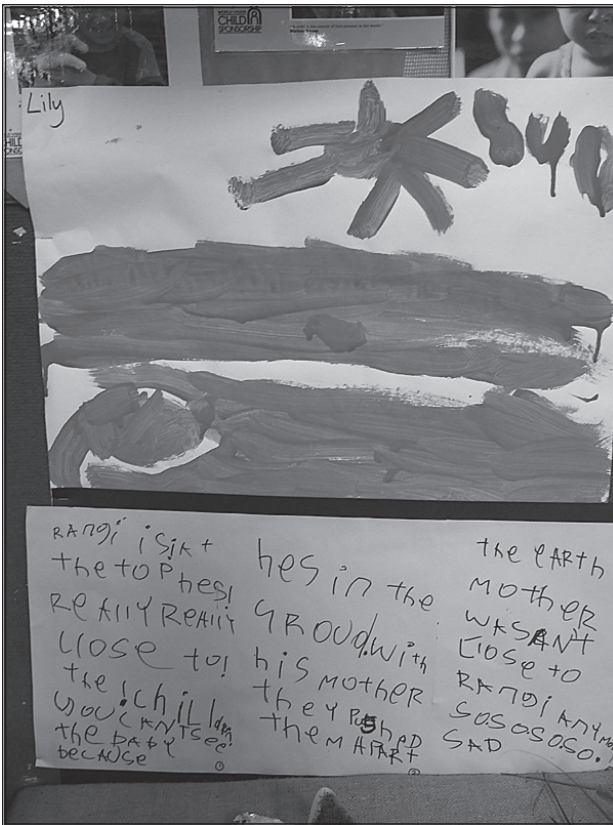 CHILD
SPONSORSHIP
Lily
SUN
RANGi iSiK+
the toP hes!
ReAllY ReAllY
CloSe to!
the !chilldren
YOU!CANTSee!
the BABY
because
hes in the
GROUd.With
his MotheR
theY PuSHED
theM APARt
the eARtH
MOtheR
WASANT
CloSe to
RANGi ANYMORe
SOSOSOSO.
SAD